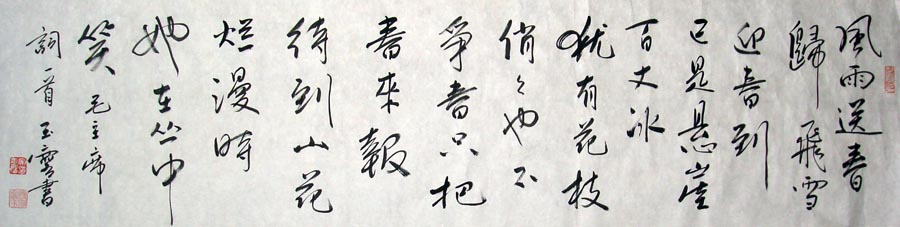 風雨送春
歸飛雪
迎春到
已是悬崖
百丈冰
犹有花枝
俏々也不
爭春只把
春来報
待到山花
烂漫時
她在丛中
笑毛主席
詞一首玉書